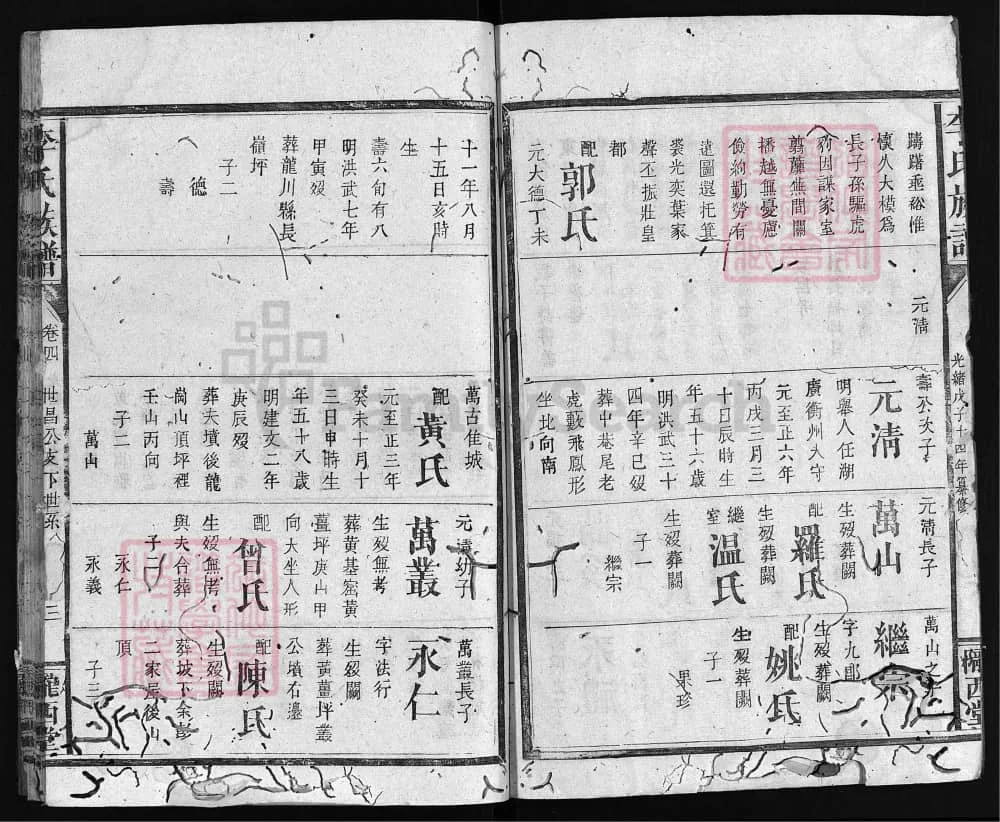 李氏族譜
光緒戊子十四年纂修
隴西堂
躊躇垂裕惟
慎人大模爲
長子孫驅虎
豹因謀家室
翦蘿蕉間關
播越無憂慮
儉約勤勞有
遠圖還托箕
裘光奕葉家
聲丕振壯皇
都
配
郭氏
元大德丁未
元清
壽公次子
元清
明舉人任湖
廣衡州太守
元至正六年
丙戌三月三
十日辰時生
年五十六歲
明洪武三十
四年辛巳歿
葬中巷尾老
虎藪飛鳳形
坐北向南
元清長子
萬山
生歿葬闕
配
羅氏
生歿葬闕
繼室
温氏
生歿葬闕
子一
繼宗
萬山之子
繼宗
字九郎
生歿葬闕
配
姚氏
生歿葬闕
子一
果珍
十一年八月
十五日亥時
生
明洪武七年
甲寅歿
壽六旬有八
葬龍川縣長
嶺坪
子二
德
壽
萬古隹城
配
黃氏
元至正三年
癸未十月十
三日申時生
年五十八歲
明建文二年
庚辰歿
葬夫墳後龍
崗山頂坪裡
壬山丙向
子二
萬山
元清幼子
萬叢
生歿無考
葬黄基窩黄
薑坪庚山甲
向大坐人形
配
曾氏
生歿無考
與夫合葬
子二
永仁
永義
萬叢長子
永仁
字法行
生歿闕
葬黄薑坪叢
公墳右邊
配
陳氏
生歿闕
葬坡下余彭
二家屋後山
頂
子三
李氏族譜
卷四
世昌公支下世系
三
隴西堂